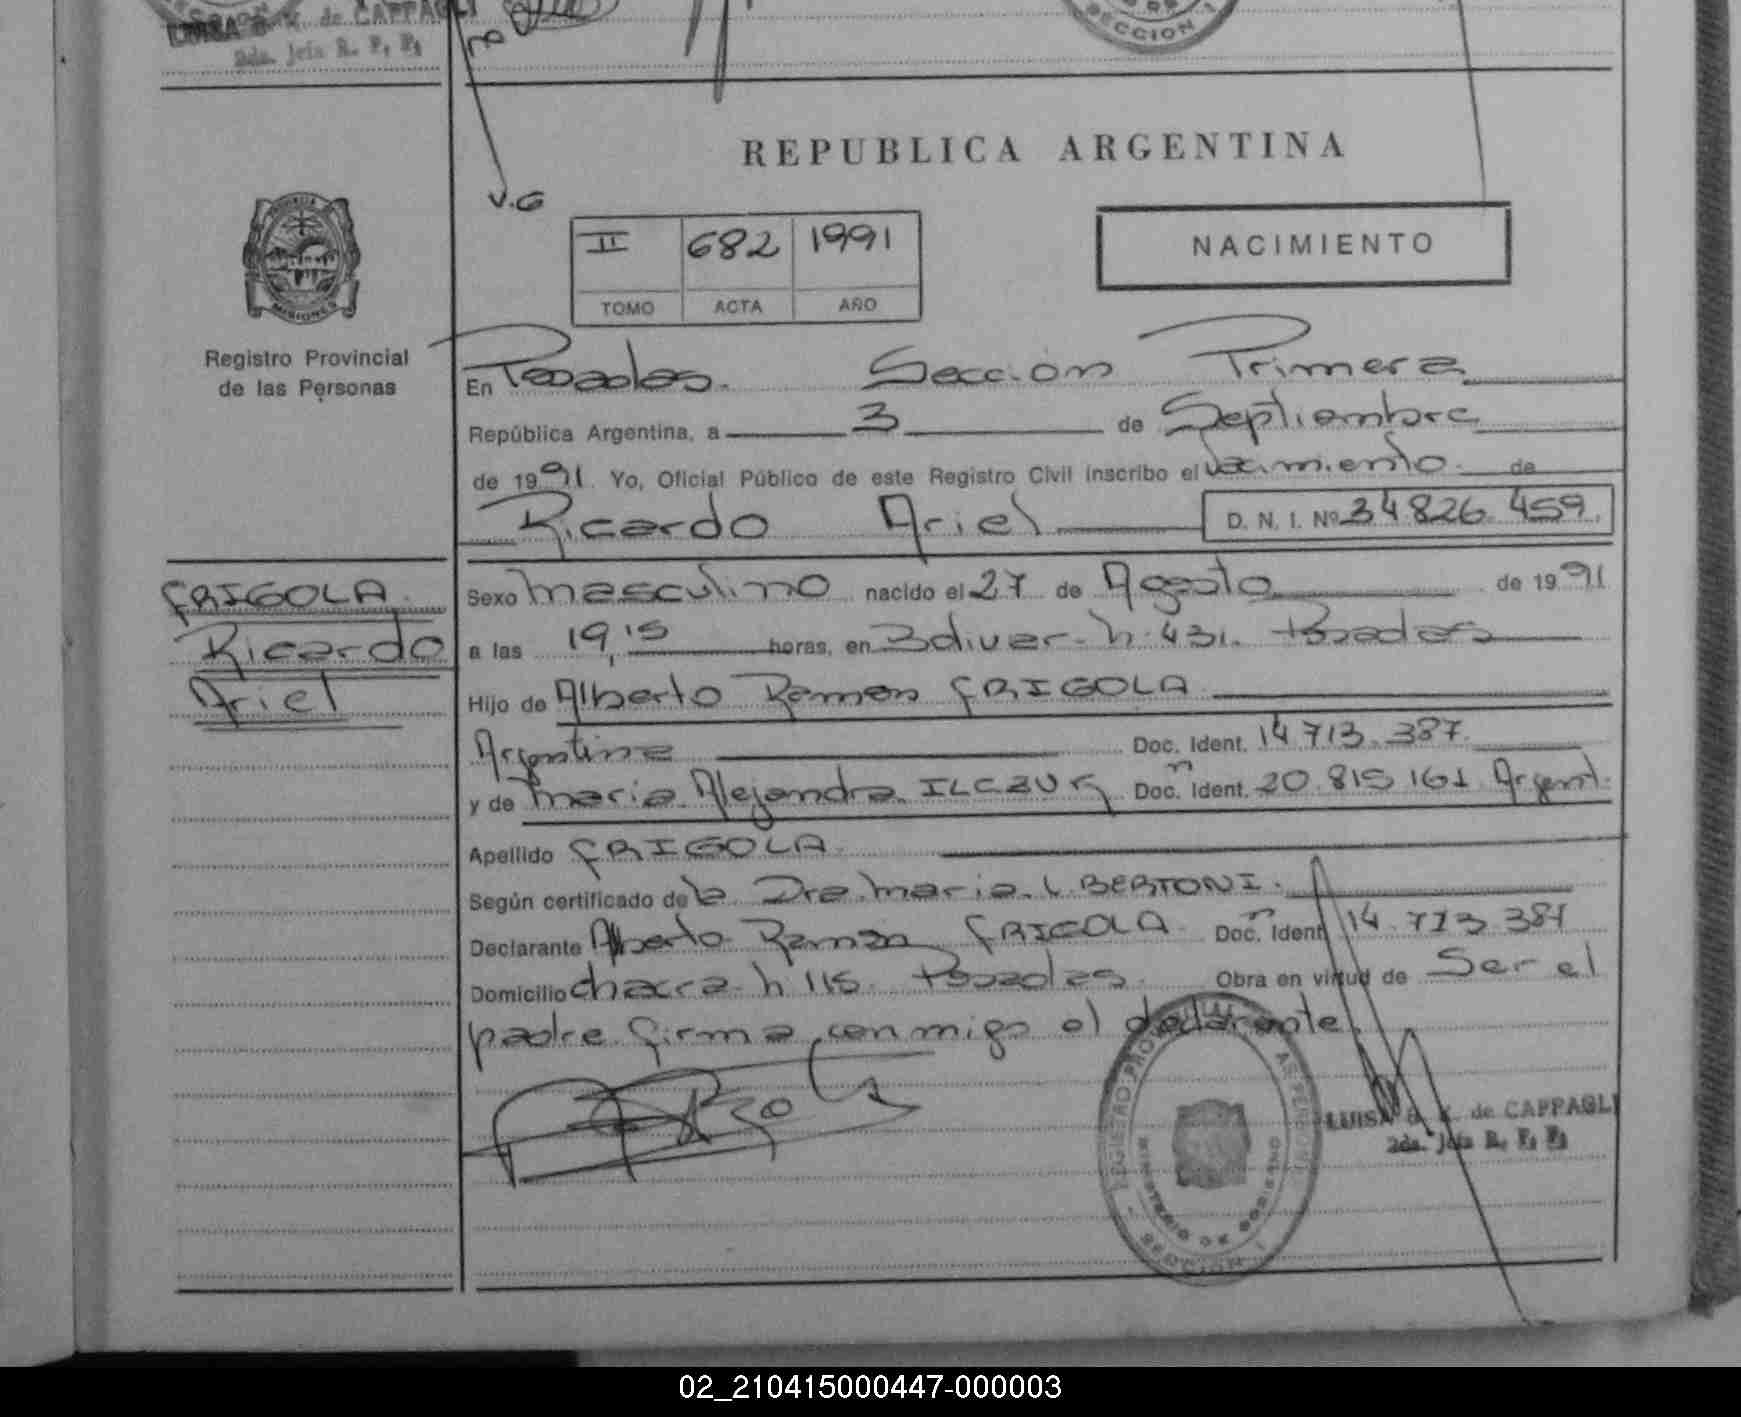 LUISA B. K. de CAPPAGLI
2da. Jefa R. P. P.
SECCION 1
V.G
REPUBLICA ARGENTINA
II 682 1991
TOMO ACTA AÑO
NACIMIENTO
PROVINCIA
MISIONES
Registro Provincial
de las Personas
En Posadas. Sección Primera
República Argentina, a 3 de Septiembre
de 1991. Yo, Oficial Público de este Registro Civil inscribo el nacimiento de
Ricardo Ariel D. N. I. Nº 34.826.459.
FRIGOLA.
Ricardo
Ariel
Sexo masculino nacido el 27 de Agosto de 1991
a las 19,15 horas, en Bolivar - n. 431. Posadas
Hijo de Alberto Ramon FRIGOLA
Argentina Doc. Ident. 14.713.387.
y de maria Alejandra Doc. Ident. 20.815.161 Argent.
Apellido FRIGOLA.
Según certificado de la Dra. maria L. BERTONI.
Declarante Alberto Ramón FRIGOLA. Doc. Ident. 14.713.387
Domicilio chacra n 115. Posadas. Obra en virtud de Ser el
padre firma conmigo el declarante.
REGISTRO PROVINCIAL DE LAS PERSONAS
MINISTERIO DE GOBIERNO
SECCION 1
LUISA B. K. de CAPPAGLI
2da. Jefa R. P. P.
02_210415000447-000003